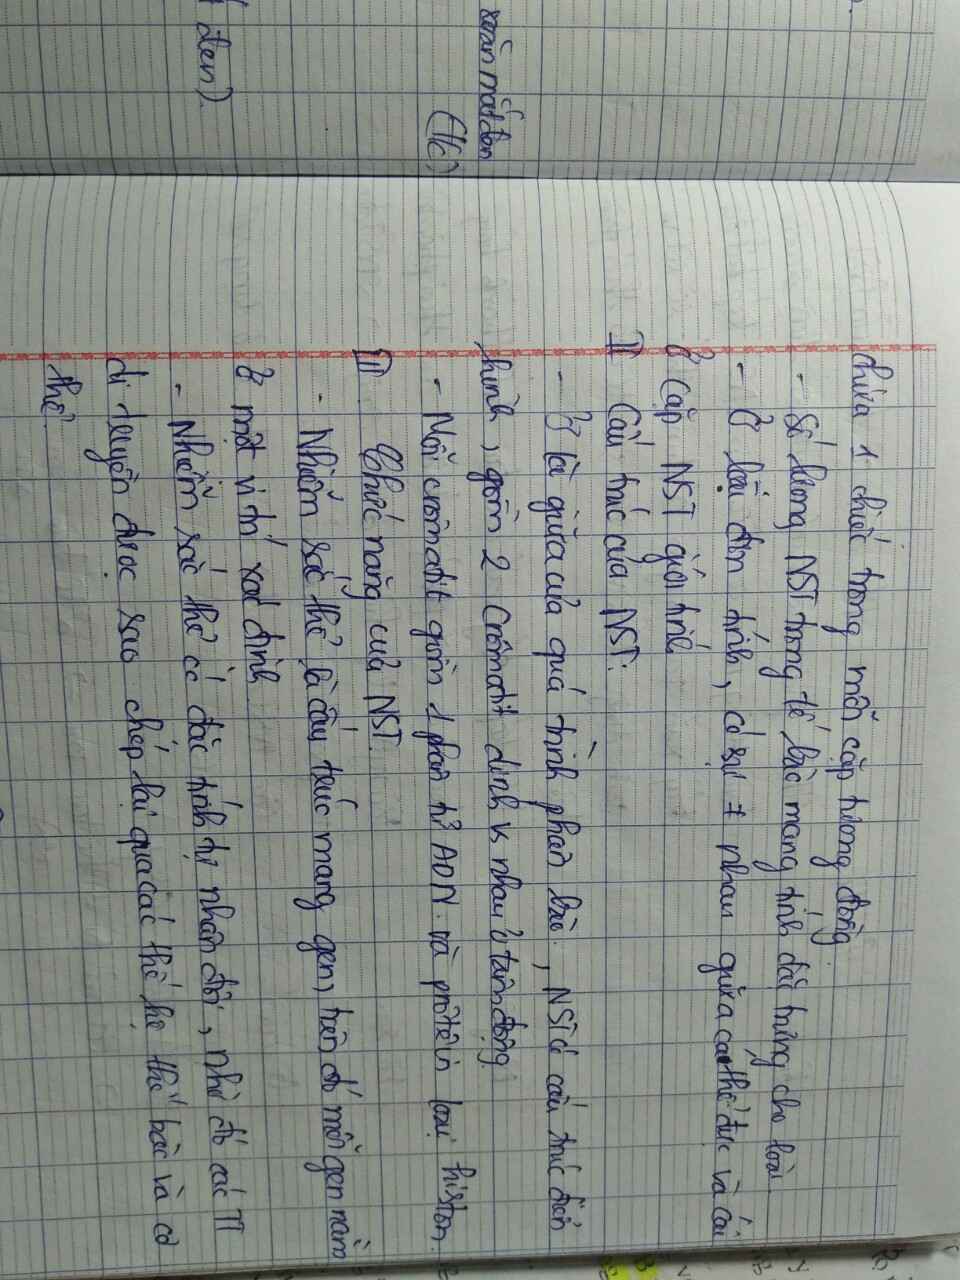 xoăn mắt đen
(F1)
đen).
chứa 1 chiếc trong mỗi cặp tương đồng
- Số lượng NST trong tế bào mang tính đặc trưng cho loài.
- Ở loài đơn tính, có sự ≠ nhau giữa cá thể đực và cái
ở cặp NST giới tính
II Cấu trúc của NST.
- Ở kì giữa của quá trình phân bào, NST có cấu trúc điển
hình, gồm 2 Crômatit dính vs nhau ở tâm động
- Mỗi crômatit gồm 1 phân tử ADN và prôtêin loại histon.
III Chức năng của NST.
- Nhiễm sắc thể là cấu trúc mang gen, trên đó mỗi gen nằm
ở một vị trí xác định
- Nhiễm sắc thể có đặc tính tự nhân đôi, nhờ đó các TT
di truyền được sao chép lại qua các thế hệ thế bào và cơ
thể.